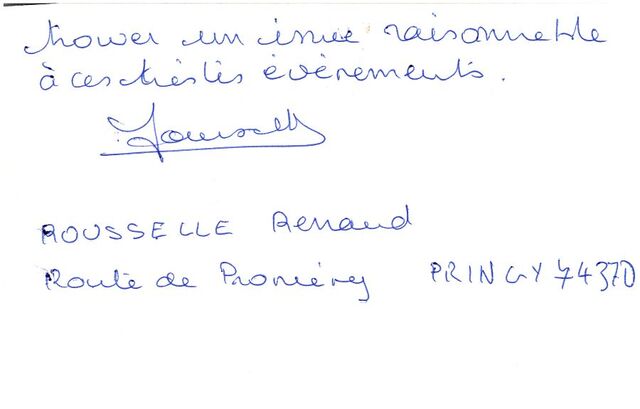 trouver un issue raisonnable
à ces tristes évènements.
ROUSSELLE Renaud
Route de Proméry PRINGY 74370